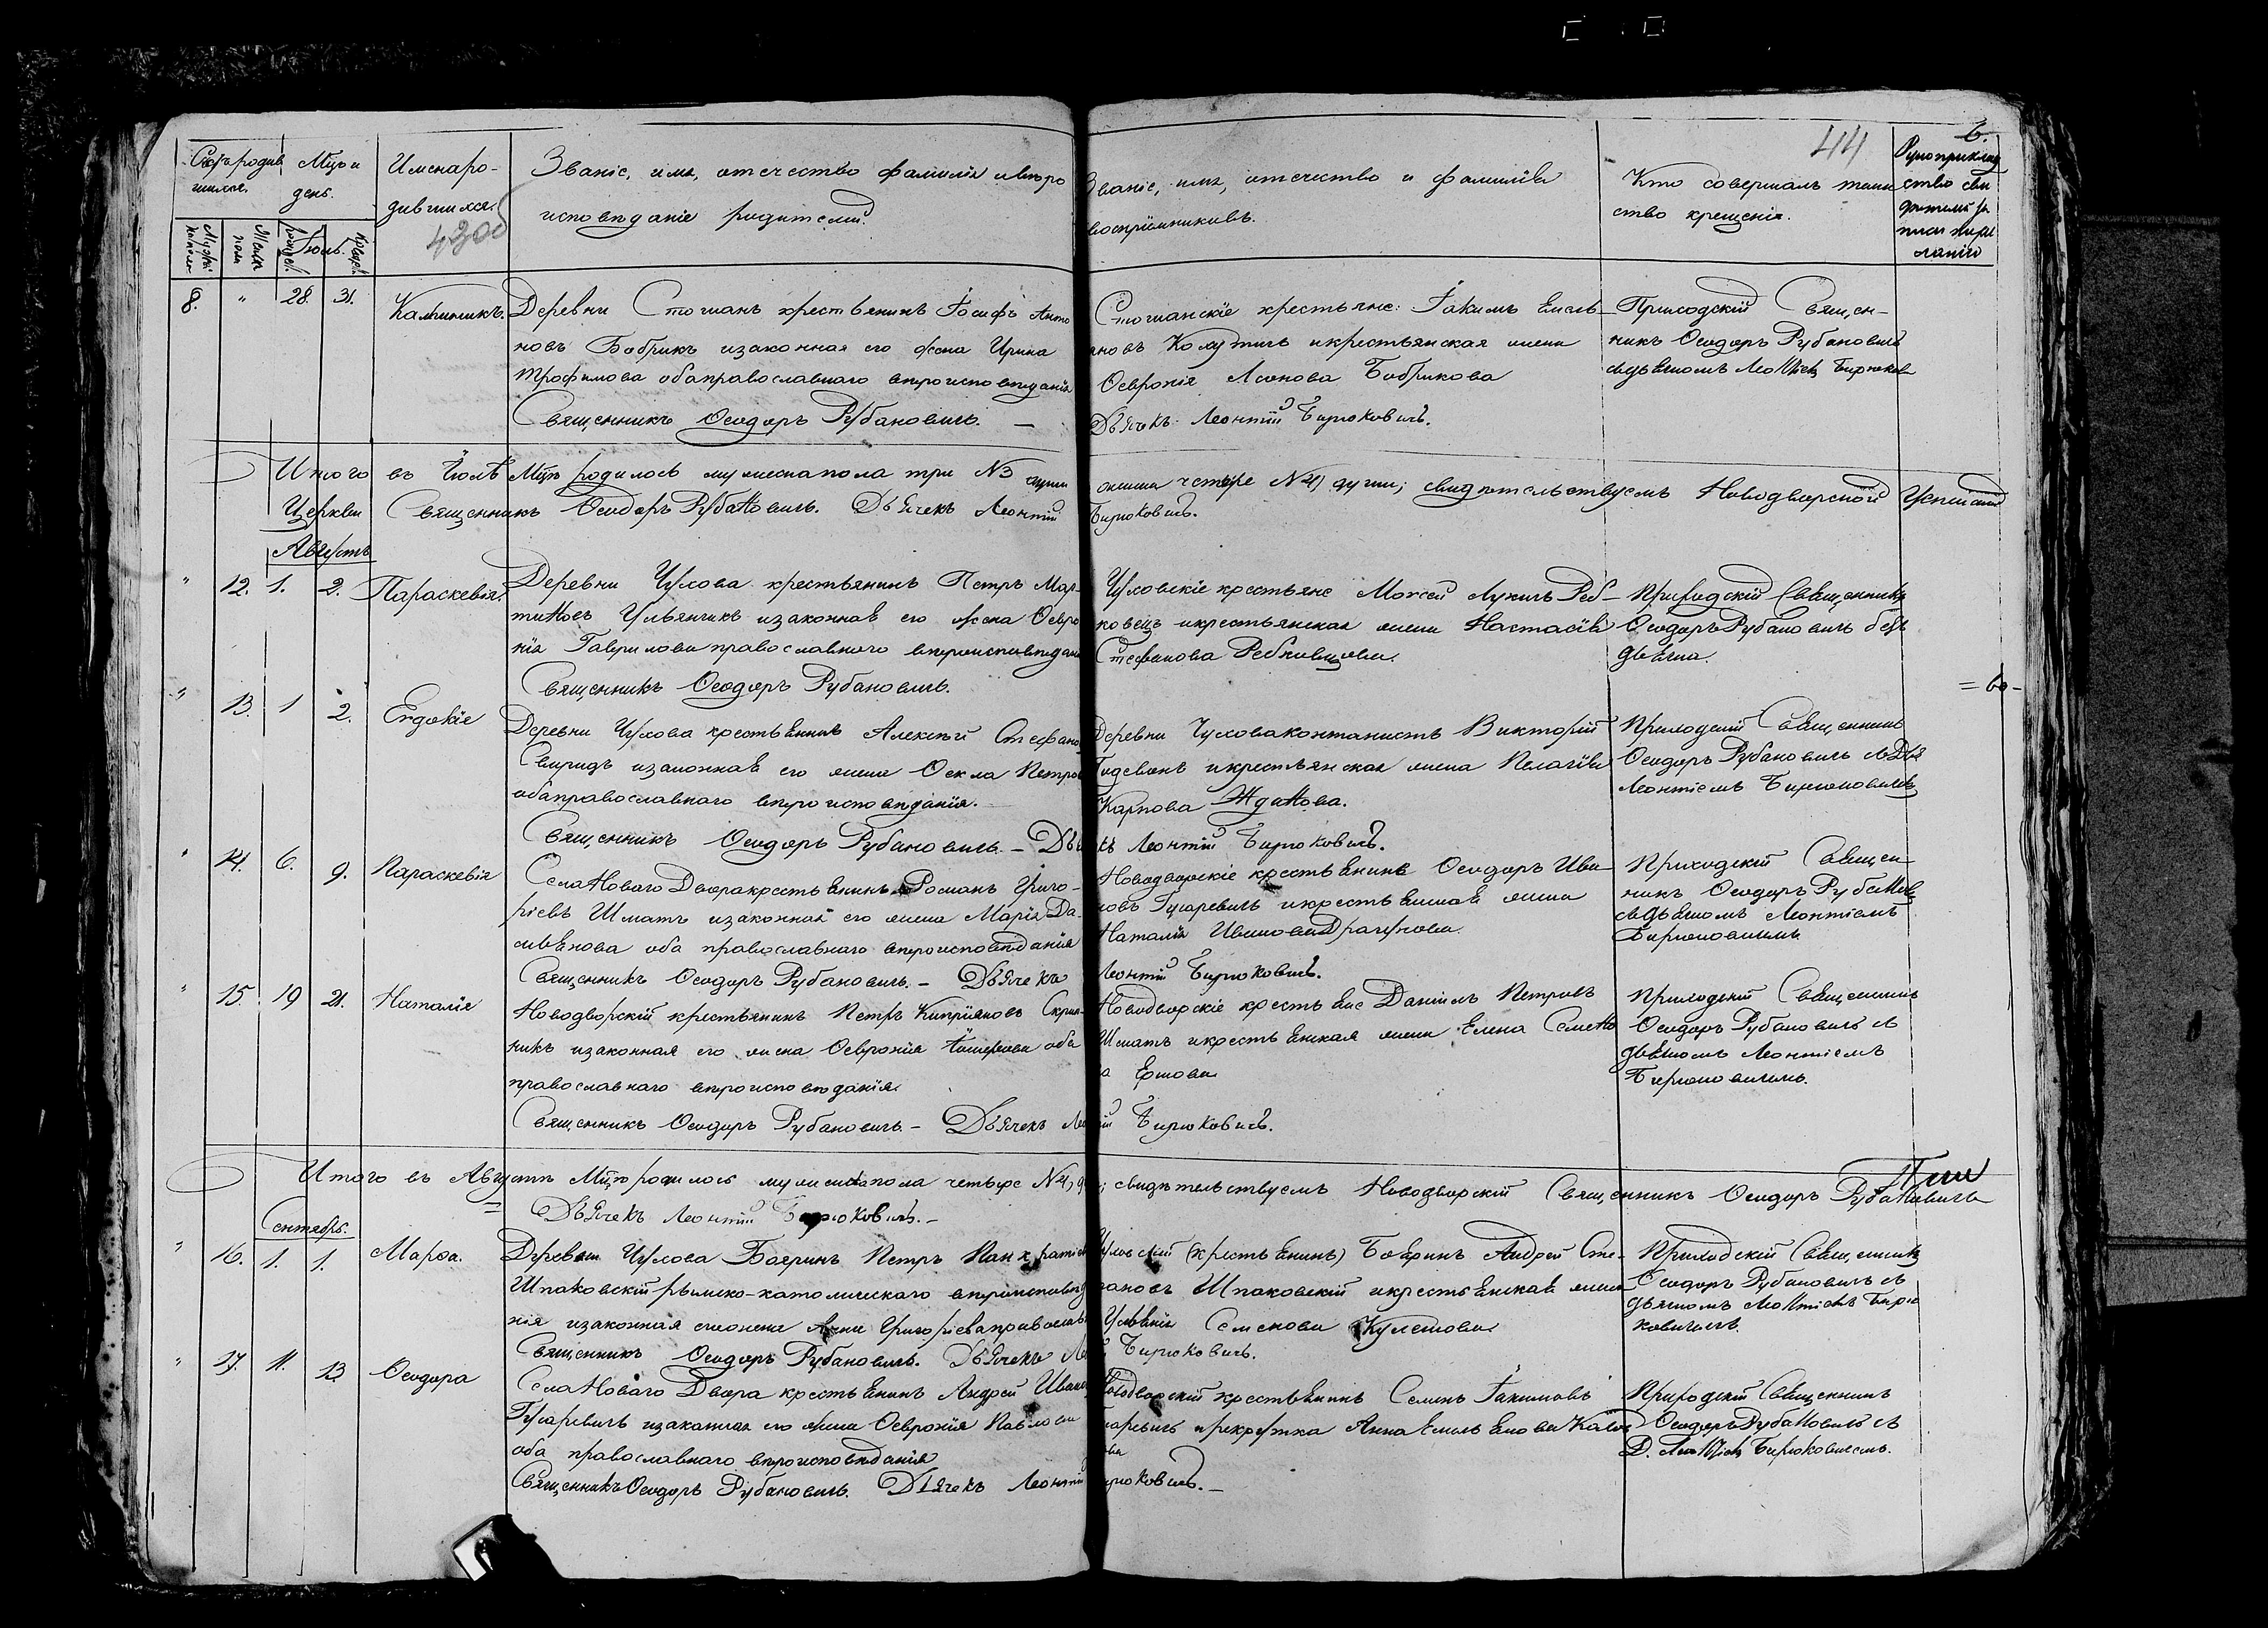 44
6.
Счетъ родив
шихся.
Мцъ и
день.
Имена ро-
дившихся.
4300
Званіе, имя, отечество фамилія и вѣро
исповѣданіе родителей.
Званіе, имя, отечество и фамилія
воспріемниковъ.
Кто совершалъ таин
ство крещенія.
Рукоприклад
ство сви
дѣтелей за
писи по же
ланію
Мужес
Женск
пола
рожден.
Іюль.
Крещен.
8. " 28. 31.
Каллиникъ.
Деревни Стошанъ крестьянинъ Іосифъ Анто
новъ Бобрикъ и законная его жена Ирина
Трофимова оба православнаго вѣроисповѣданія
Священникъ Ѳеодоръ Рубановичъ. —
Стошанскіе крестьяне: Іакимъ Емель-
яновъ и крестьянская жена
Ѳевронія Леонова Бобрикова
Дьячекъ Леонтій Бирюковичъ.
Приходскій Священ-
никъ Ѳеодоръ Рубановичъ
съ дьячкомъ Леонтіемъ Бирюков
Итого въ Іюлѣ Мцѣ родилось мужеска пола три №3 души
женска четыре №4) души; свидѣтельствуемъ Новодворской Успенской
Церкви Священникъ Ѳеодоръ Рубановичъ. Дьячекъ Леонтій
Бирюковичъ.
Августъ
" 12. 1. 2. Параскевія.
Деревни Чухова крестьянинъ Петръ Мар-
тиновъ Ульянчикъ и законная его жена Ѳевро
нія Гаврилова православнаго вѣроисповѣданія
Священникъ Ѳеодоръ Рубановичъ.
Чуховскіе крестьяне Моисей Лукичъ Реб-
ковецъ и крестьянская жена Настасія
Стефанова Ребковцова.
Приходскій Священникъ
Ѳеодоръ Рубановичъ безъ
дьячка.
" 13. 1 2. Евдокія
= 60 -
Деревни Чухова крестьянинъ Алексѣй Стефано
Свиридъ и законная его жена Ѳекла Петров
оба православнаго вѣроисповѣданія.
Священникъ Ѳеодоръ Рубановичъ. — Дья
Деревни Чухова Викторій
и крестьянская жена Пелагія
Карпова Жданова.
къ Леонтій Бирюковичъ.
Приходскій Священникъ
Ѳеодоръ Рубановичъ съ Дья
Леонтіемъ Бирюковичемъ
" 14. 6. 9. Параскевія
Села Новаго Двора крестьянинъ Романъ Григо-
ріевъ Шматъ и законная его жена Марія Да-
міанова оба православнаго вѣроисповѣданія
Священникъ Ѳеодоръ Рубановичъ. — Дьячекъ
Новодворскіе крестьянинъ Ѳеодоръ Ива-
новъ Гусаревичъ и крестьянская жена
Наталія Иванова Драгунова.
Леонтій Бирюковичъ.
Приходскій Священ
никъ Ѳеодоръ Рубанов
съ дьячкомъ Леонтіемъ
Бирюковичемъ
" 15. 19 21. Наталія
Новодворскій крестьянинъ Петръ Кипріяновъ Скрип-
никъ и законная его жена Ѳевронія оба
православнаго вѣроисповѣданія.
Священникъ Ѳеодоръ Рубановичъ. — Дьячекъ Ле
Новодворскіе крестьяне Даніилъ Петровъ
Шматъ и крестьянская жена Елена Семено
а Ершова
ій Бирюковичъ.
Приходскій Священникъ
Ѳеодоръ Рубановичъ съ
дьячкомъ Леонтіемъ
Бирюковичемъ.
Итого въ Августѣ Мцѣ родилось женска пола четыре №4)
; свидѣтельствуемъ Новодворскій Священникъ Ѳеодоръ Рубановичъ
Дьячекъ Леонтій Бирюковичъ. —
Сентябрь.
" 16. 1. 1. Марѳа.
Деревни Чухова Бояринъ Петръ Панкратіев
Шпаковскій римско-католическаго вѣроисповѣда
нія и законная его жена Анна Григорьева православ
Священникъ Ѳеодоръ Рубановичъ. Дьячекъ Ле
Чуховскій (крестьянинъ) Бояринъ Андрей Сте-
фановъ Шпаковскій и крестьянская жена
Уліянія Семенова Кулешова.
Бирюковичъ.
Приходскій Священникъ
Ѳеодоръ Рубановичъ съ
дьячкомъ Леонтіемъ Бирю
ковичемъ.
" 17. 11. 13 Ѳеодора
Села Новаго Двора крестьянинъ Андрей Ивано
Гусаревичъ и законная его жена Ѳевронія Павлова
оба православнаго вѣроисповѣданія
Священникъ Ѳеодоръ Рубановичъ. Дьячекъ Леонтій
Новодворскій крестьянинъ Семенъ Іакимовъ
саревичъ и рекрутка Анна Емельянова
Бирюковичъ. —
Приходскій Священникъ
Ѳеодоръ Рубановичъ съ
Д. Леонтіемъ Бирюковичемъ.